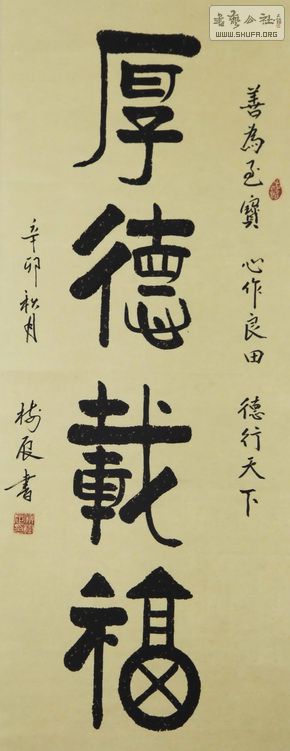 善為至寶 心作良田 德行天下
厚德載福
辛卯秋月
樹辰書
書藝公社
WWW.SHUFA.ORG